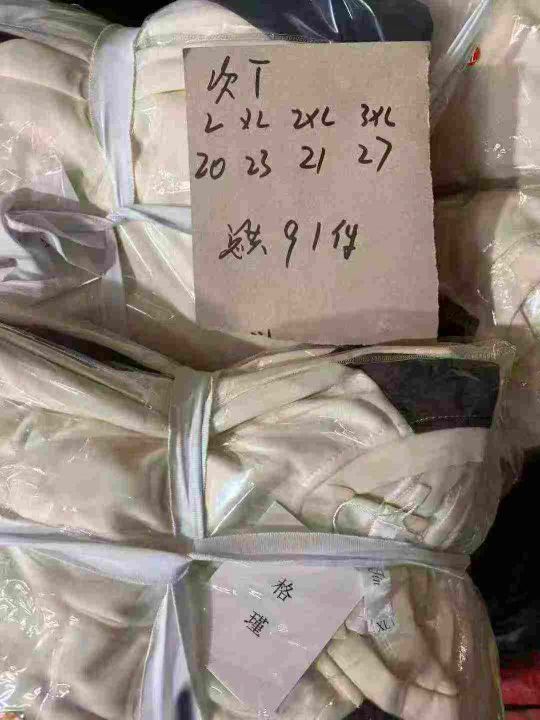 次T
L XL 2XL 3XL
20 23 21 27
总共91件
格
瑾
XL